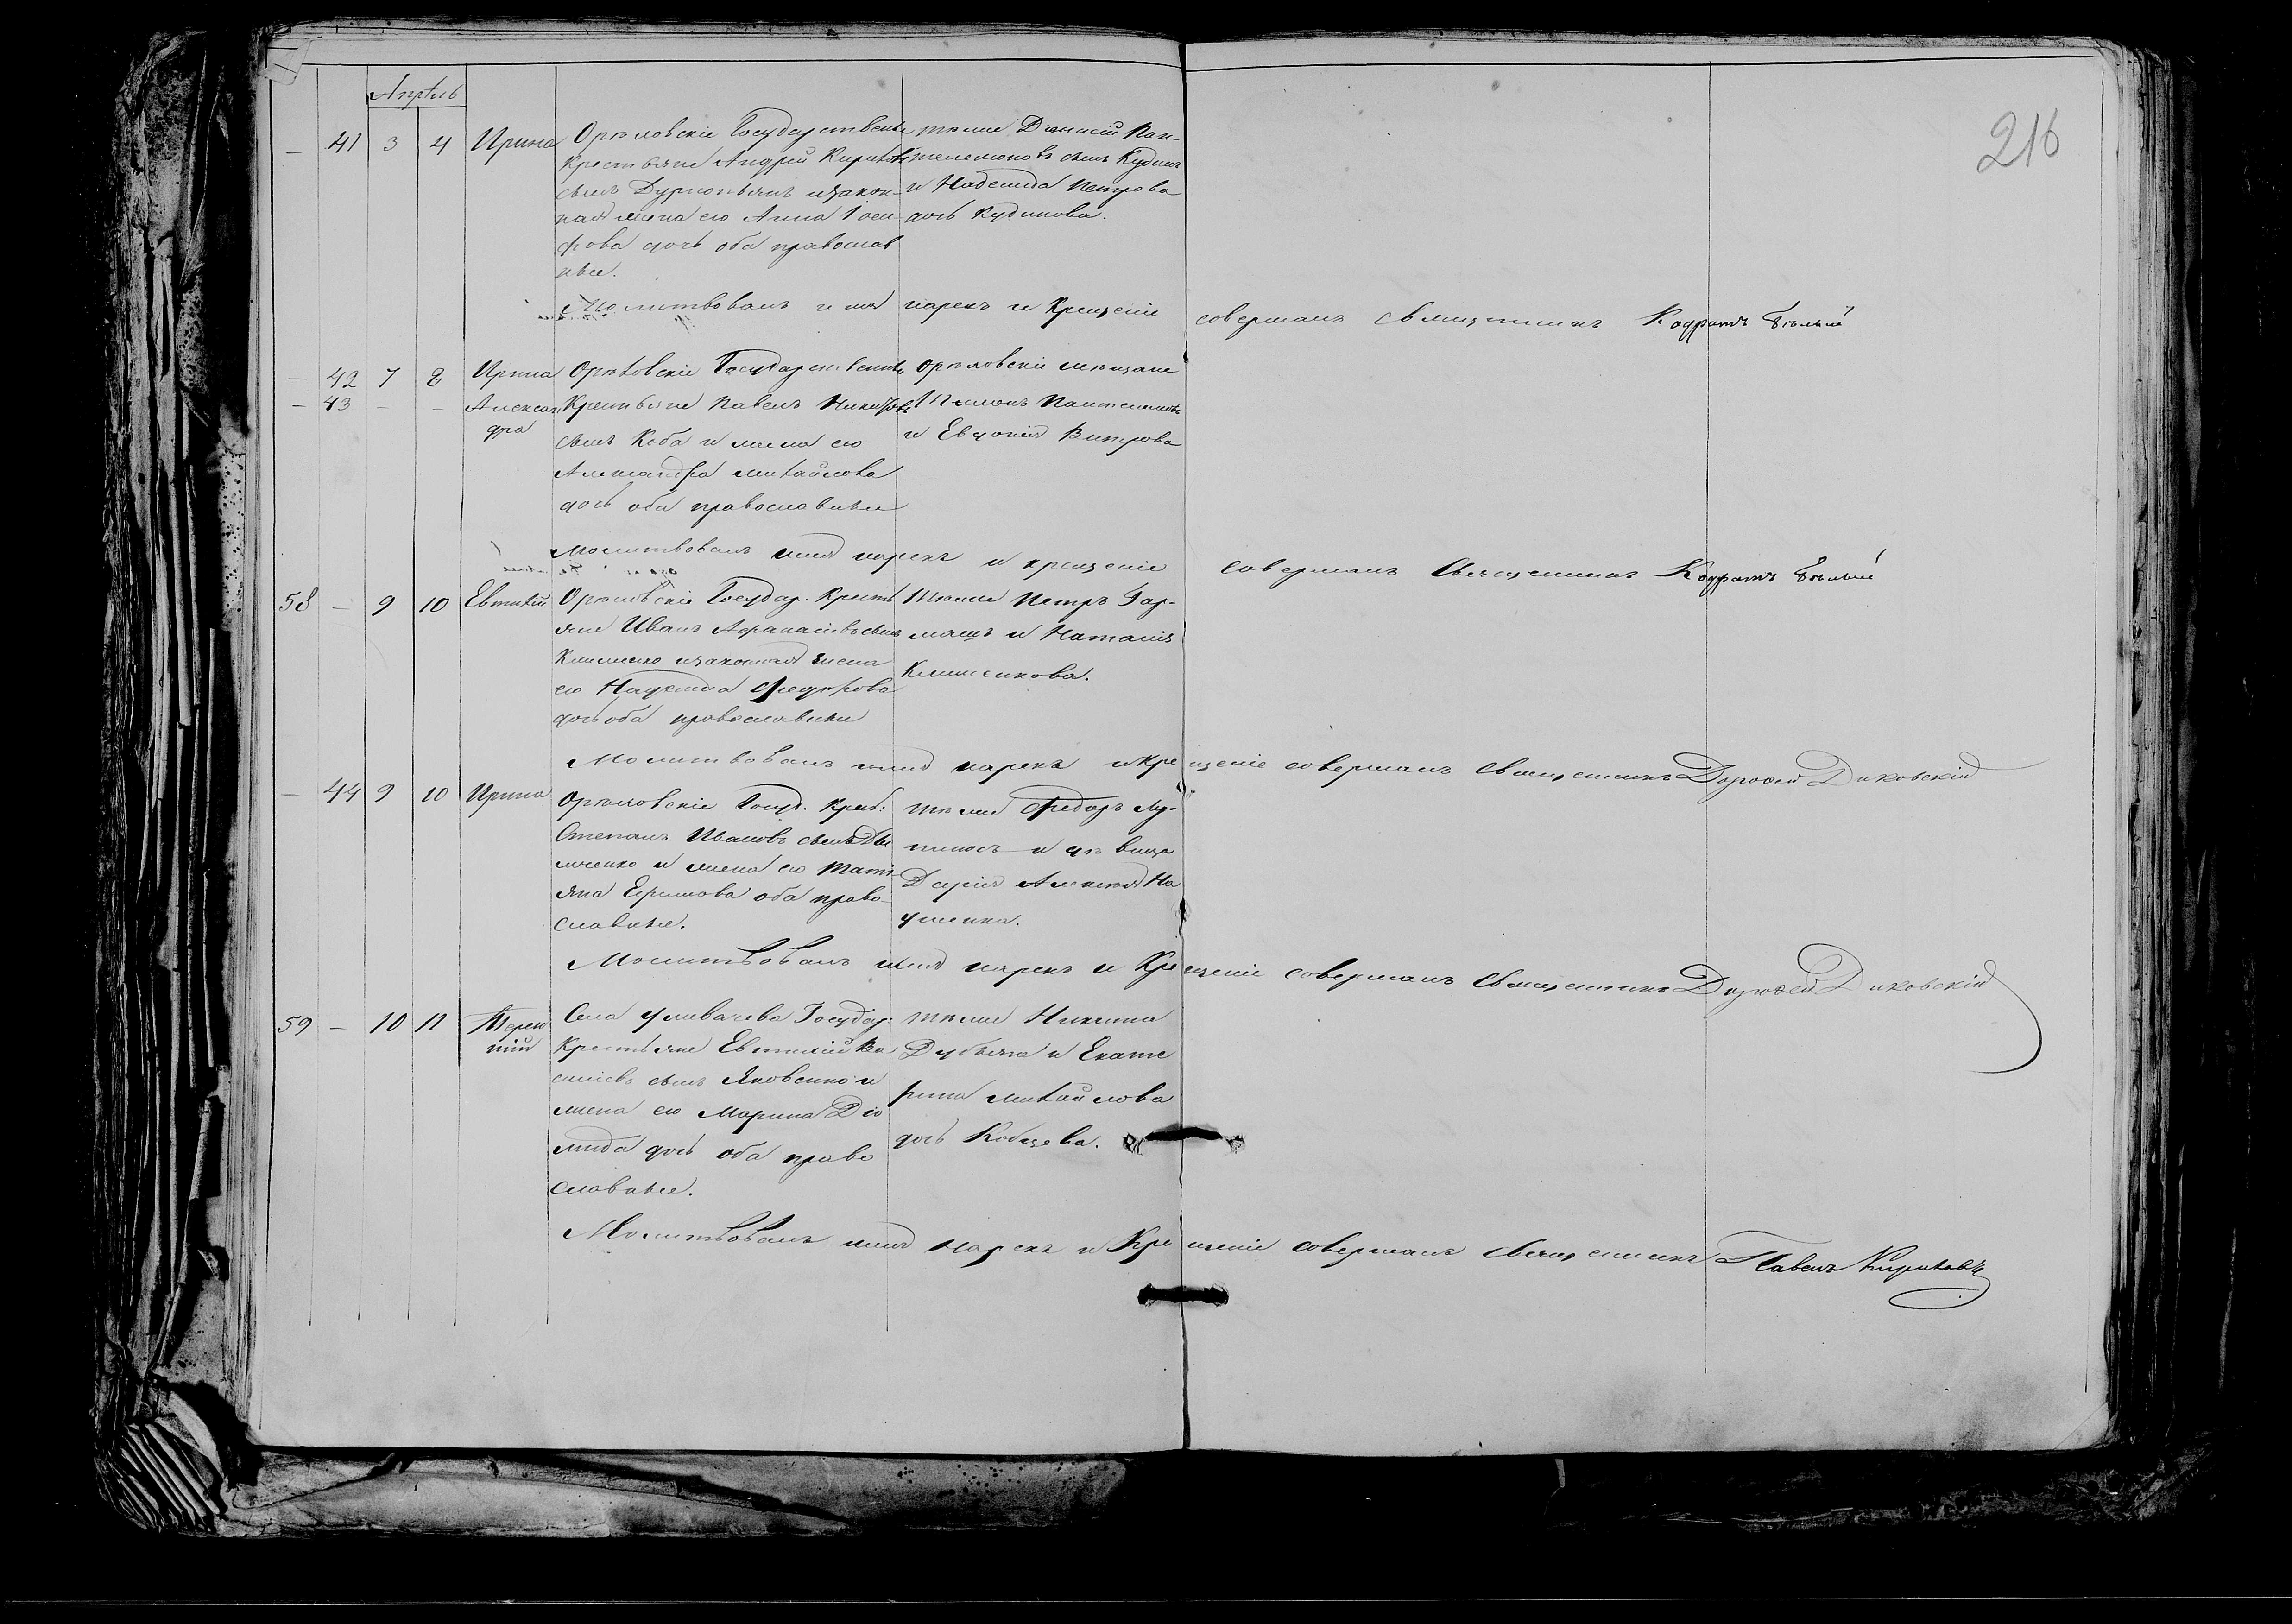 Апрѣль
216
— 41 3 4 Ирина
Орѣховскіе Государственные
Крестьяне Андрей Кириловъ
сынъ Дурнопьянъ и закон-
ная жена его Анна Іоси-
фова дочь оба православ
ные.
тѣже Діонисій Пан-
телемоновъ сынъ Кудинъ
и Надежда Петрова
дочь Кудинова.
Молитвовалъ имя нарекъ и Крещеніе совершалъ Священникъ Кодратъ Бѣлый
— 42 7 8 Ирина
— 43 — — Алексан
дра
Орѣховскіе Государственные
Крестьяне Павелъ
сынъ Коба и жена его
Александра Михайлова
дочь оба православные
орѣховскіе мѣщане
и Евдокія Витрова
Молитвовалъ имя нарекъ и крещеніе совершалъ Священникъ Кодратъ Бѣлый
58 — 9 10 Евтихій
Орѣховскіе Государ. Кресть
яне Иванъ Афанасіевъ сынъ
Клименко и законная жена
его Надежда Федорова
дочь оба православные
Тѣже Петръ Гар-
машъ и Наталія
Клименкова.
Молитвовалъ имя нарекъ и кре щеніе совершалъ Священникъ Дорофей Диковскій
— 44 9 10 Ирина
Орѣховскіе Госуд. Крест:
Степанъ Ивановъ сынъ
и жена его Тати-
яна Ефимова оба право-
славные.
тѣже Федоръ Лу-
и дѣвица
Дарія
Молитвовалъ имя нарекъ и Кре щеніе совершалъ Священникъ Дорофей Диковскій
59 — 10 11 Терен
тій
Села Государ:
Крестьяне Евтихій Ва
силіевъ сынъ Яковенко и
жена его Марина Діо
мида дочь оба право
славные.
тѣже Никита
и Екате
рина Михайлова
дочь Кобцева.
Молитвовалъ имя нарекъ и Кре щеніе совершалъ Священникъ Павелъ Кириловъ